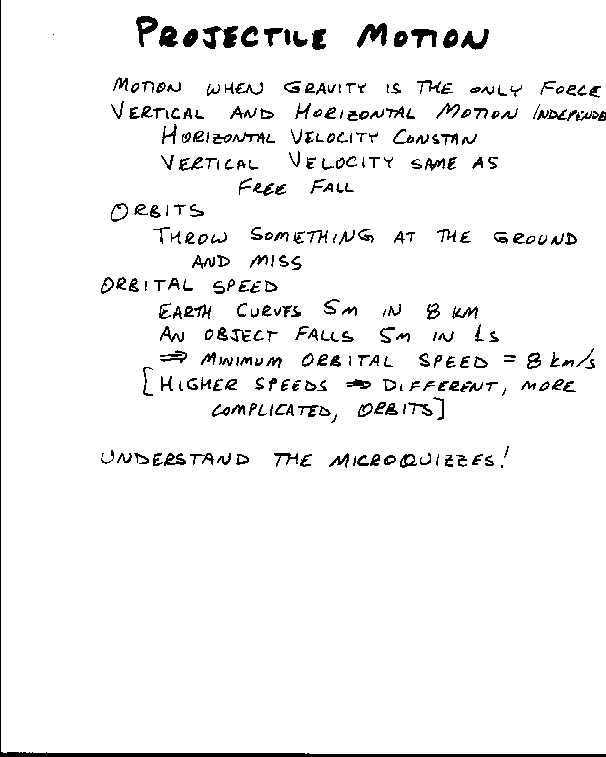 PROJECTILE MOTION
MOTION WHEN GRAVITY IS THE ONLY FORCE
VERTICAL AND HORIZONTAL MOTION INDEPENDE
HORIZONTAL VELOCITY CONSTAN
VERTICAL VELOCITY SAME AS
FREE FALL
ORBITS
THROW SOMETHING AT THE GROUND
AND MISS
ORBITAL SPEED
EARTH CURVES 5m IN 8 KM
AN OBJECT FALLS 5m IN 1s
⇒ MINIMUM ORBITAL SPEED = 8 km/s
[HIGHER SPEEDS ⇒ DIFFERENT, MORE
COMPLICATED, ORBITS]
UNDERSTAND THE MICROQUIZZES!